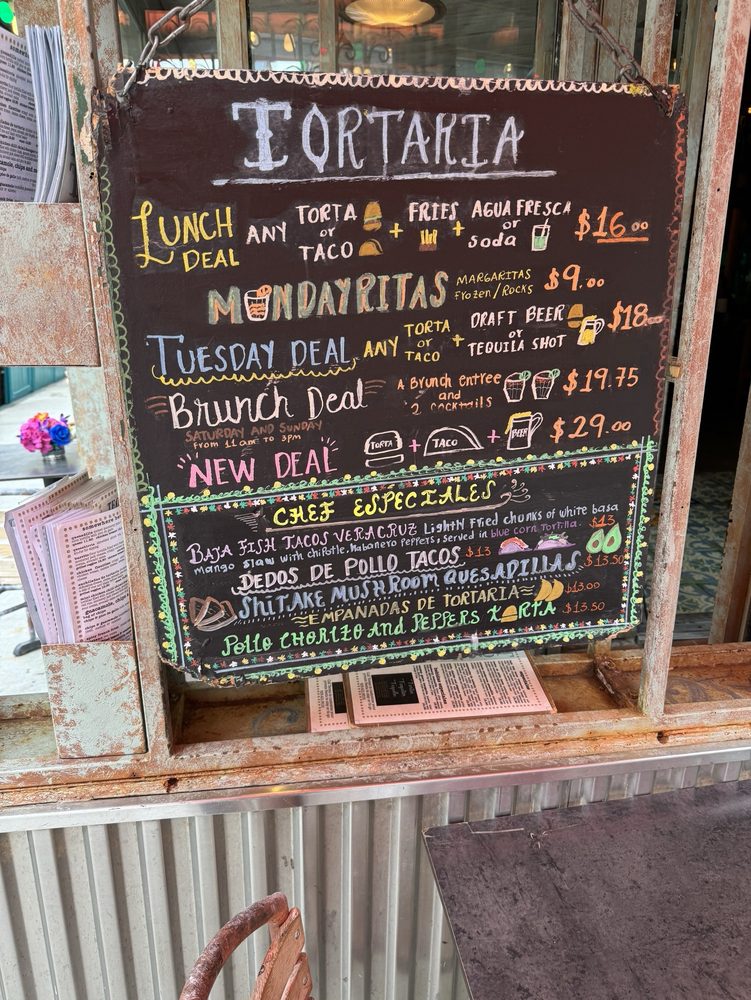 TORTARIA
LUNCH DEAL ANY TORTA or TACO + FRIES + AGUA FRESCA or soda $16.00
MONDAYRITAS MARGARITAS Frozen/Rocks $9.00
TUESDAY DEAL ANY TORTA or TACO + DRAFT BEER or TEQUILA SHOT $18
Brunch Deal A Brunch entree and 2 cocktails $19.75
SATURDAY AND SUNDAY
From 11am to 3pm
NEW DEAL TORTA + TACO + BEER $29.00
CHEF ESPECIALES
BAJA FISH TACOS VERACRUZ Lightly Fried chunks of white basa
mango slaw with chipotle, Habanero peppers, served in blue corn tortilla. $13
DEDOS DE POLLO TACOS $13
SHITAKE MUSHROOM QUESADILLAS $13.50
EMPAÑADAS DE TORTARIA $13.00
Pollo CHORIZO AND PEPPERS TORTA $13.50